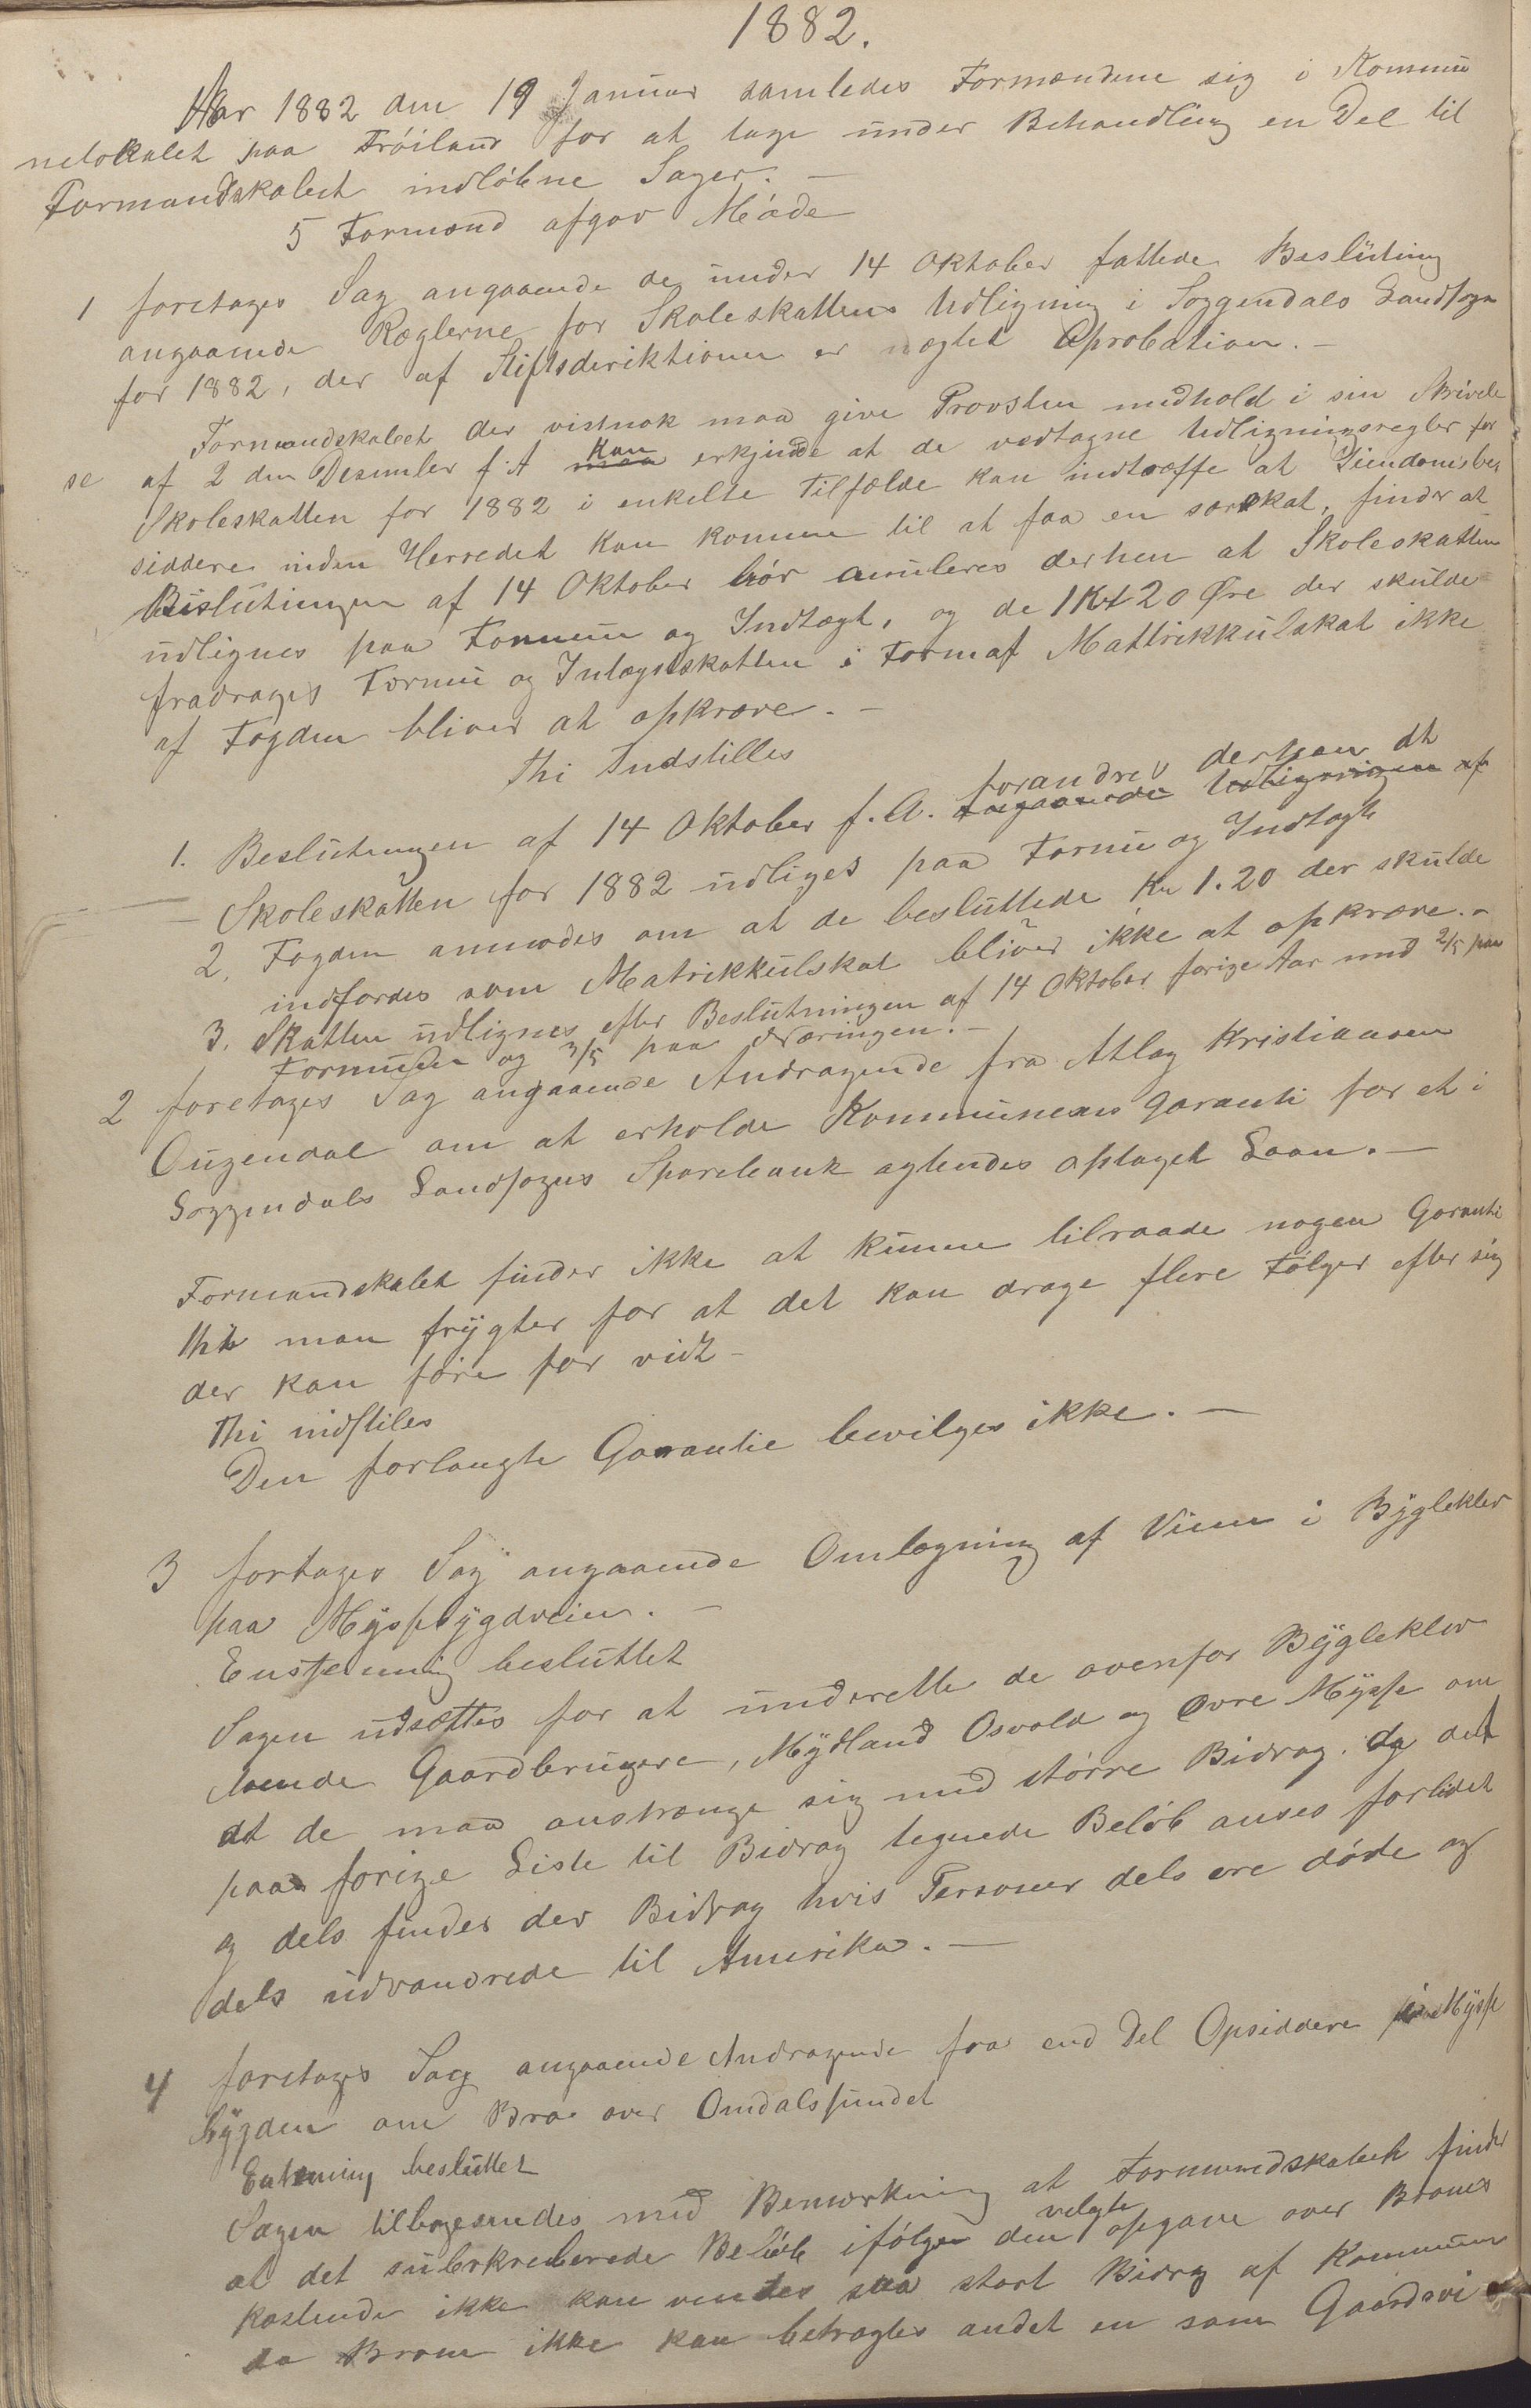 1882.
Aar 1882 den 19 Januar samledes Formændene sig i Kommu
nelokalet paa Fröiland for at tage under Behandling en Del til
Formandskabet indlöbne Sager. —
5 Formænd afgav Möde
1 foretages Sag angaaende de under 14 Oktober fattede Beslutning
angaaende Reglerne for Skoleskattens Udligning i Soggendals Landsogn
for 1882, der af Stiftsderiktionen er nægtet Aprobation. —
Formandskabet der vistnok maa give Provsten medhold i sin Skrivel
se af 2 den Desember f. A kan erkjende at de vedtagne Udligningsregler for
Skoleskatten for 1882 i enkelte Tilfælde kan indtræffe at Eiendomsbe
siddere inden Herredet kan komme til at faa en særskat, finder at
Beslutningen af 14 Oktober bör anuleres derhen at Skoleskatten
udlignes paa Formue og Indtægt, og de 1 Kr 20 Øre der skulde
fradrages Formu og Intægtsskatten i Form af Mattrikkulskat ikke
af Fogden bliver at opkræve. —
Thi Indstilles
1. Beslutningen af 14 Oktober f. A. forandres derhen at
Skoleskatten for 1882 udliges paa Formu og Indtægt
2. Fogden anmodes om at de besluttede Kr 1.20 der skulde
indfordes som Matrikkulskat bliver ikke at opkræve. —
3. Skatten udlignes efter Beslutningen af 14 Oktober forige Aar med 2/5 paa
Formuen og 3/5 paa Næringen. —
2 foretages Sag angaaende Andragende fra Atlag Kristiansen
Ougendal om at erholde Kommunens Garanti for et i
Soggendals Landsogns Sparebank agtendes optaget Laan. —
Formandskabet finder ikke at kunne tilraade nogen Garanti
Thi man frygter for at det kan drage flere Fölger efter sig
der kan före for vidt —
Thi indstiles
Den forlangte Garantie bevilges ikke. —
3 fortages Sag angaaende Omlægning af Veien i Bygleklev
paa Myssebygdveien. —
Enstemmig besluttet
Sagen udsættes for at underette de ovenfor Bygleklev
boende Gaardbrugere, Mydland Osvold og Øvre Mysse om
at de maa anstrænge sig med större Bidrag. da det
paa forige Liste til Bidrag tegnede Belöb anses forlidet
og dels findes der Bidrag hvis Personer dels ere döde og
dels udvandrede til Amerika. —
4 foretages Sag angaaende Andragende fra end Del Opsiddere i Mysse
bygden om Bro over Omdalssundet
Entemig besluttet
Sagen tilbagesendes med Bemærkning at Formandskabet finder
at det suberkreberede Belöb ifölge den velagte opgave over Broens
kostende ikke kan ventes saa stort Bidrag af Kommunen
da Broen ikke kan betragtes andet en som Gaardsvei